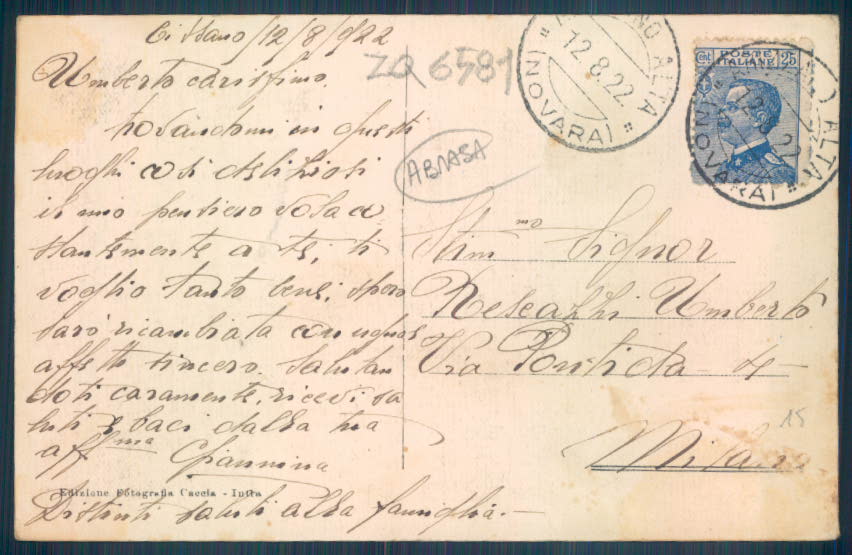 12/8/922
Umberto carissimo.
trovandomi in questi
luoghi così deliziosi
il mio pensiero vola co
stantemente a te, ti
voglio tanto bene, spero
sarò ricambiata con ugual
affetto sincero. Salutan
doti caramente, ricevi sa
luti e baci dalla tua
aff.ma Giannina
Edizione Fotografia Caccia - Intra
Distinti saluti alla famiglia.-
ZQ 6581
ABRASA
ALTA
12.8.22
(NOVARA)
POSTE
ITALIANE
Cent
25
ALTA
12.8.22
(NOVARA)
Stim.mo Signor
Umberto
Via Pontida 4
Milano
15